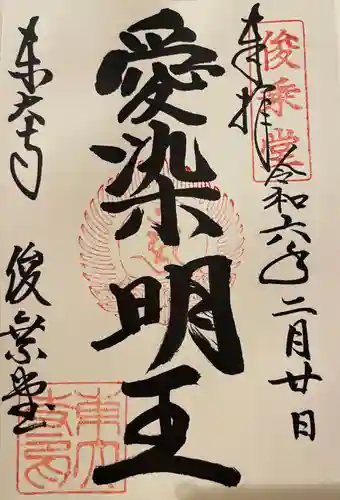 奉拝
俊乗堂
令和六年二月廿日
愛染明王
東大寺
俊乗堂
東大寺印